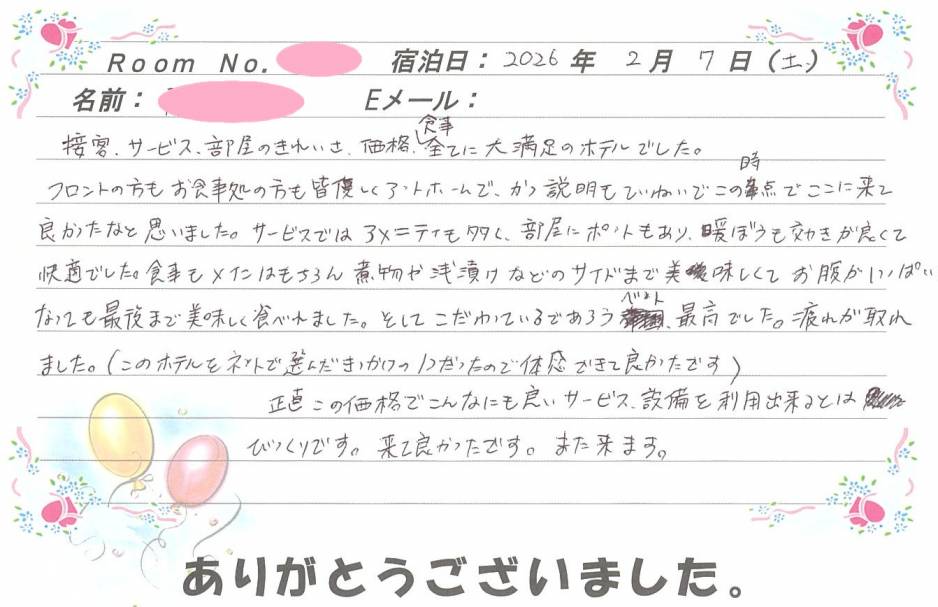 Room No. 宿泊日： 2026 年 2 月 7 日 (土)
名前： Eメール：
接客、サービス、部屋のきれいさ、価格、食事全てに大満足のホテルでした。
フロントの方もお食事処の方も皆優しくアットホームで、かつ説明もていねいでこの時点でここに来て
良かったなと思いました。サービスではアメニティも多く、部屋にポットもあり、暖ぼうも効きが良くて
快適でした。食事もメインはもちろん煮物や浅漬けなどのサイドまで美味しくてお腹がいっぱい
なっても最後まで美味しく食べれました。そしてこだわっているであろうベット、最高でした。疲れが取れ
ました。(このホテルをネットで選んだきっかけの1つだったので体感できて良かったです)
正直この価格でこんなにも良いサービス、設備を利用出来るとは
びっくりです。来て良かったです。また来ます。
ありがとうございました。